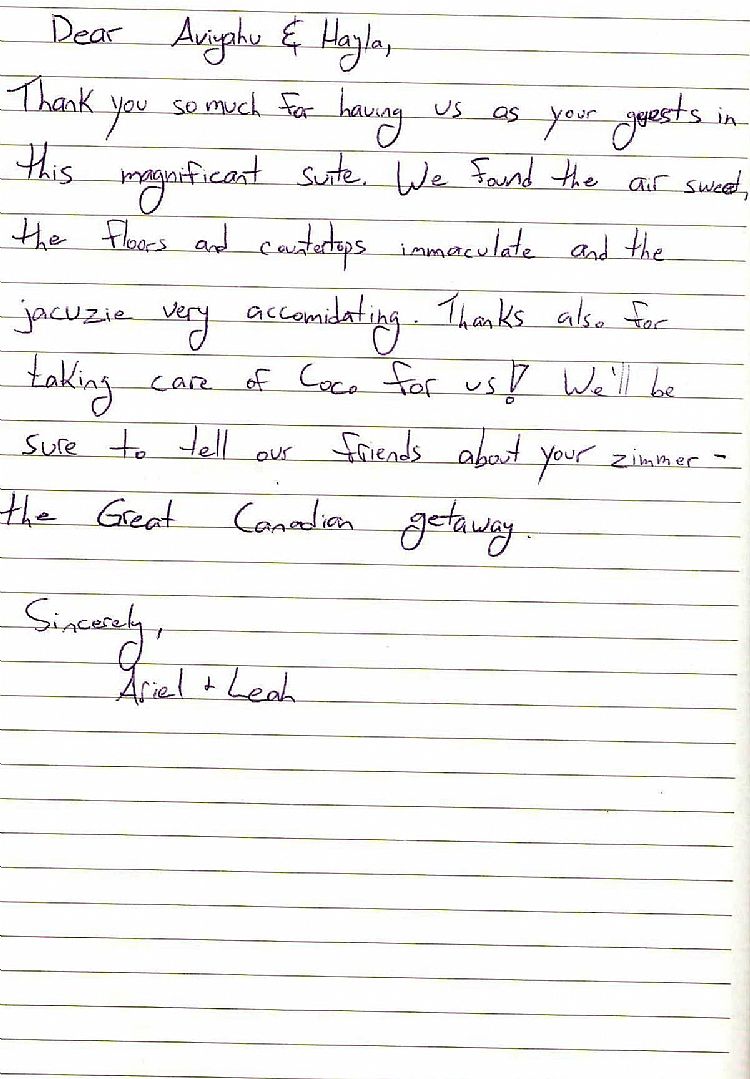 Dear Aviyahu & Hayla,
Thank you so much for having us as your guests in
this magnificant suite. We found the air sweet,
the floors and countertops immaculate and the
jacuzie very accomidating. Thanks also for
taking care of Coco for us! We'll be
sure to tell our friends about your zimmer -
the Great Canadian getaway.
Sincerely,
Ariel + Leah